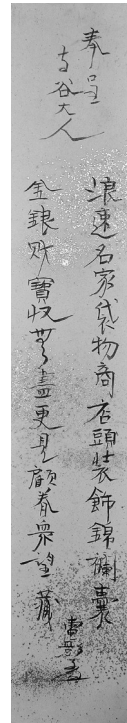 奉呈
寺谷大人
浪速名家袋物商店頭装飾錦襴嚢
金銀財寶収無盡更見顧眷衆望蔵